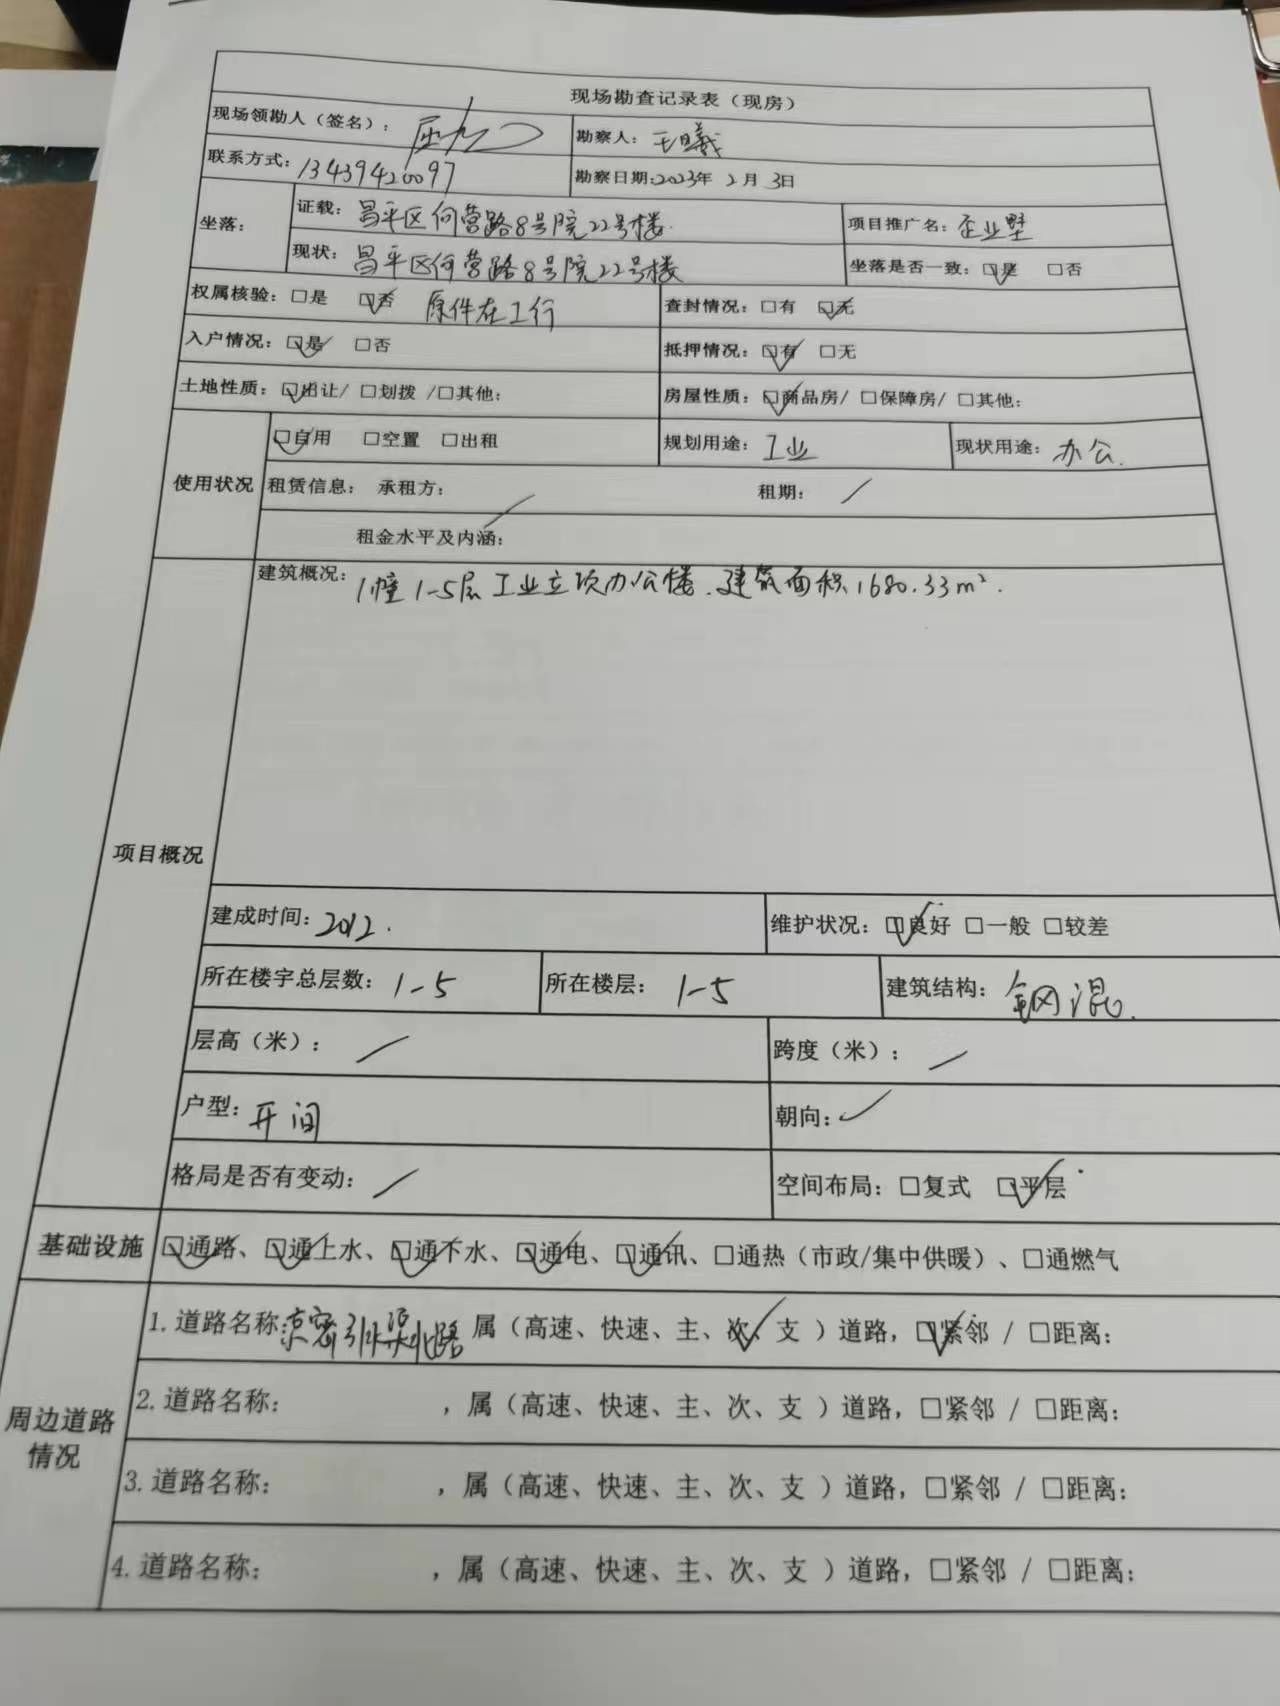 现场勘查记录表（现房）
现场领勘人（签名）： 勘察人：王曦
联系方式：13439420097 勘察日期：2023年 2月 3日
坐落： 证载：昌平区何营路8号院22号楼 项目推广名：企业墅
现状：昌平区何营路8号院22号楼 坐落是否一致：☑是 □否
权属核验：□是 ☑否 原件在工行 查封情况：□有 ☑无
入户情况：☑是 □否 抵押情况：☑有 □无
土地性质：☑出让/ □划拨 /□其他： 房屋性质：☑商品房/ □保障房/ □其他：
使用状况 ☑自用 □空置 □出租 规划用途：工业 现状用途：办公.
租赁信息： 承租方： 租期：/
租金水平及内涵： /
项目概况 建筑概况：1幢1-5层工业立项办公楼.建筑面积1680.33m².
建成时间：2012. 维护状况：☑良好 □一般 □较差
所在楼宇总层数：1-5 所在楼层：1-5 建筑结构：钢混.
层高（米）：/ 跨度（米）：/
户型：开间 朝向：/
格局是否有变动：/ 空间布局：□复式 ☑平层
基础设施 ☑通路、☑通上水、☑通下水、☑通电、☑通讯、□通热（市政/集中供暖）、□通燃气
周边道路情况 1.道路名称：京密引水渠北路 属（高速、快速、主、次✓、支 ）道路，☑紧邻 / □距离：
2.道路名称： ，属（高速、快速、主、次、支 ）道路，□紧邻 / □距离：
3.道路名称： ，属（高速、快速、主、次、支 ）道路，□紧邻 / □距离：
4.道路名称： ，属（高速、快速、主、次、支 ）道路，□紧邻 / □距离：